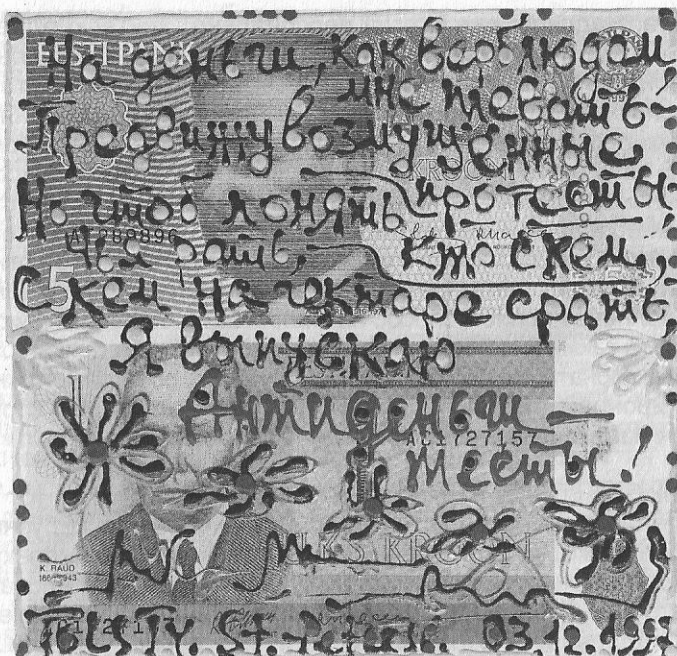 EESTI PANK
На деньги, как верблюдам
мне плевать-
Предвижу возмущенные
протесты
KROONI
Но чтоб понять
чья рать, кто с кем,
5
с кем на гектаре срать,
Я выпускаю
Антиденьги —
тесты!
1727157
KROON
K. RAUD
TOLSTY. St. 03.12.1992